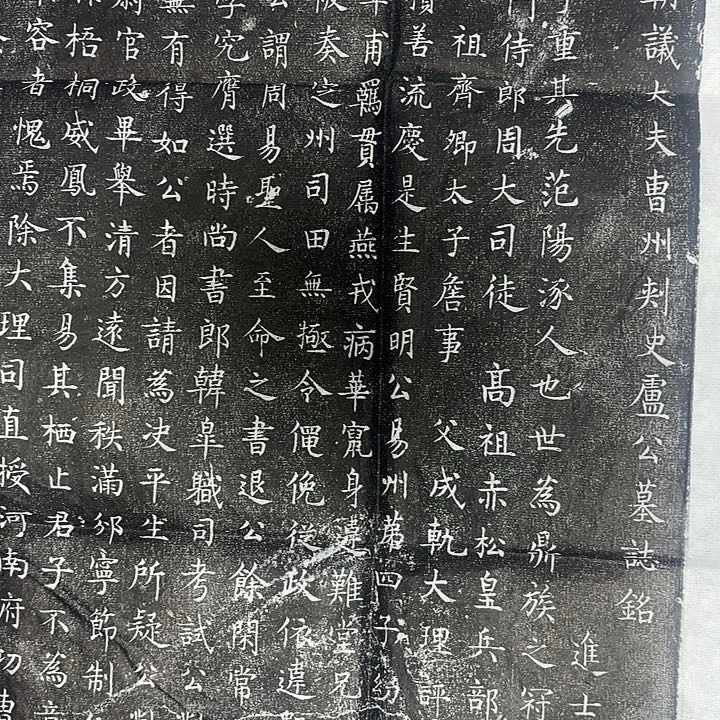 議大夫曹州刾史盧公墓誌銘
進士
重其先范陽涿人也世為鼎族之冠
侍郎周大司徒 高祖赤松皇兵部
祖齊卿太子詹事 父成軌大理評
善流慶是生賢明公易州第四子
甫羈貫属燕戎病華竄身違難堂兄
奏定州司田無極令僶俛從政依違
謂周易聖人至命之書退公餘閑常
究膺選時尚書郎韓皐職司考試公
無有得如公者因請為決平生所疑公
尉官政畢舉清方遠聞秩滿邠寧節制
梧桐威鳳不集易其栖止君子不為
容者愧焉除大理司直授河南府功曹